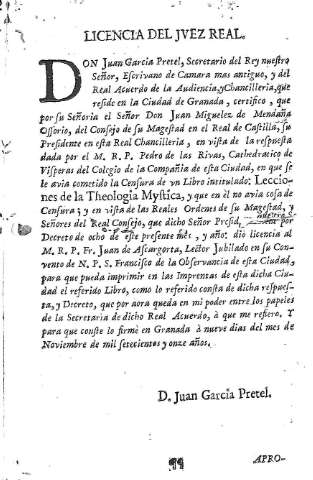 LICENCIA DEL JVEZ REAL.
DON Juan Garcia Pretel, Secretario del Rey nuestro
Señor, Escrivano de Camara mas antiguo, y del
Real Acuerdo de la Audiencia, y Chancilleria, que
reside en la Ciudad de Granada, certifico, que
por su Señoria el Señor Don Juan Miguelez de Mendaña
Ossorio, del Consejo de su Magestad en el Real de Castilla, su
Presidente en esta Real Chancilleria, en vista de la respuesta
dada por el M. R. P. Pedro de las Rivas, Cathedratico de
Visperas del Colegio de la Compañia de esta Ciudad, en que se
le avia cometido la Censura de vn Libro intitulado: Leccio-
nes de la Theologia Mystica, y que en èl no avia cosa de
Censura; y en vista de las Reales Ordenes de su Magestad, y
Señores del Real Consejo, que dicho Señor Presid,
Decreto de ocho de este presente mès, y año: diò licencia al
M. R. P. Fr. Juan de Ascargorta, Lector Jubilado en su Con-
vento de N. P. S. Francisco de la Observancia de esta Ciudad,
para que pueda imprimir en las Imprentas de esta dicha Ciu-
dad el referido Libro, como lo referido consta de dicha respues-
ta, y Decreto, que por aora queda en mi poder entre los papeles
de la Secretaria de dicho Real Acuerdo, à que me refiero. Y
para que conste lo firmè en Granada à nueve dias del mes de
Noviembre de mil setecientos y onze años.
D. Juan Garcia Pretel.
¶¶ APRO-